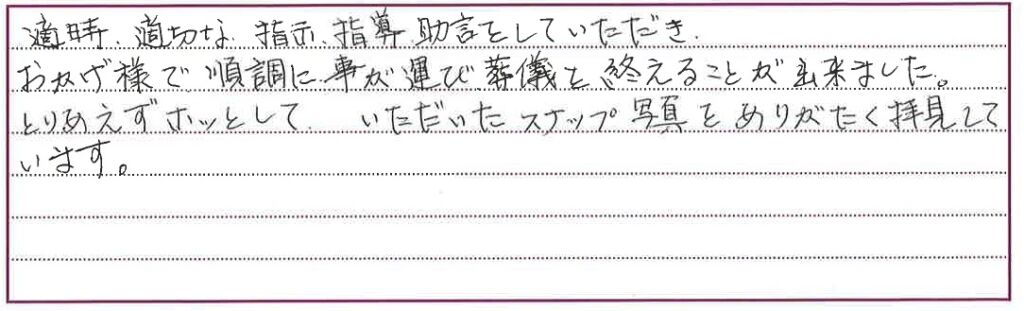 適時、適切な、指示、指導、助言をしていただき、
おかげ様で順調に事が運び葬儀を終えることが出来ました。
とりあえずホッとして、いただいたスナップ写真をありがたく拝見して
います。